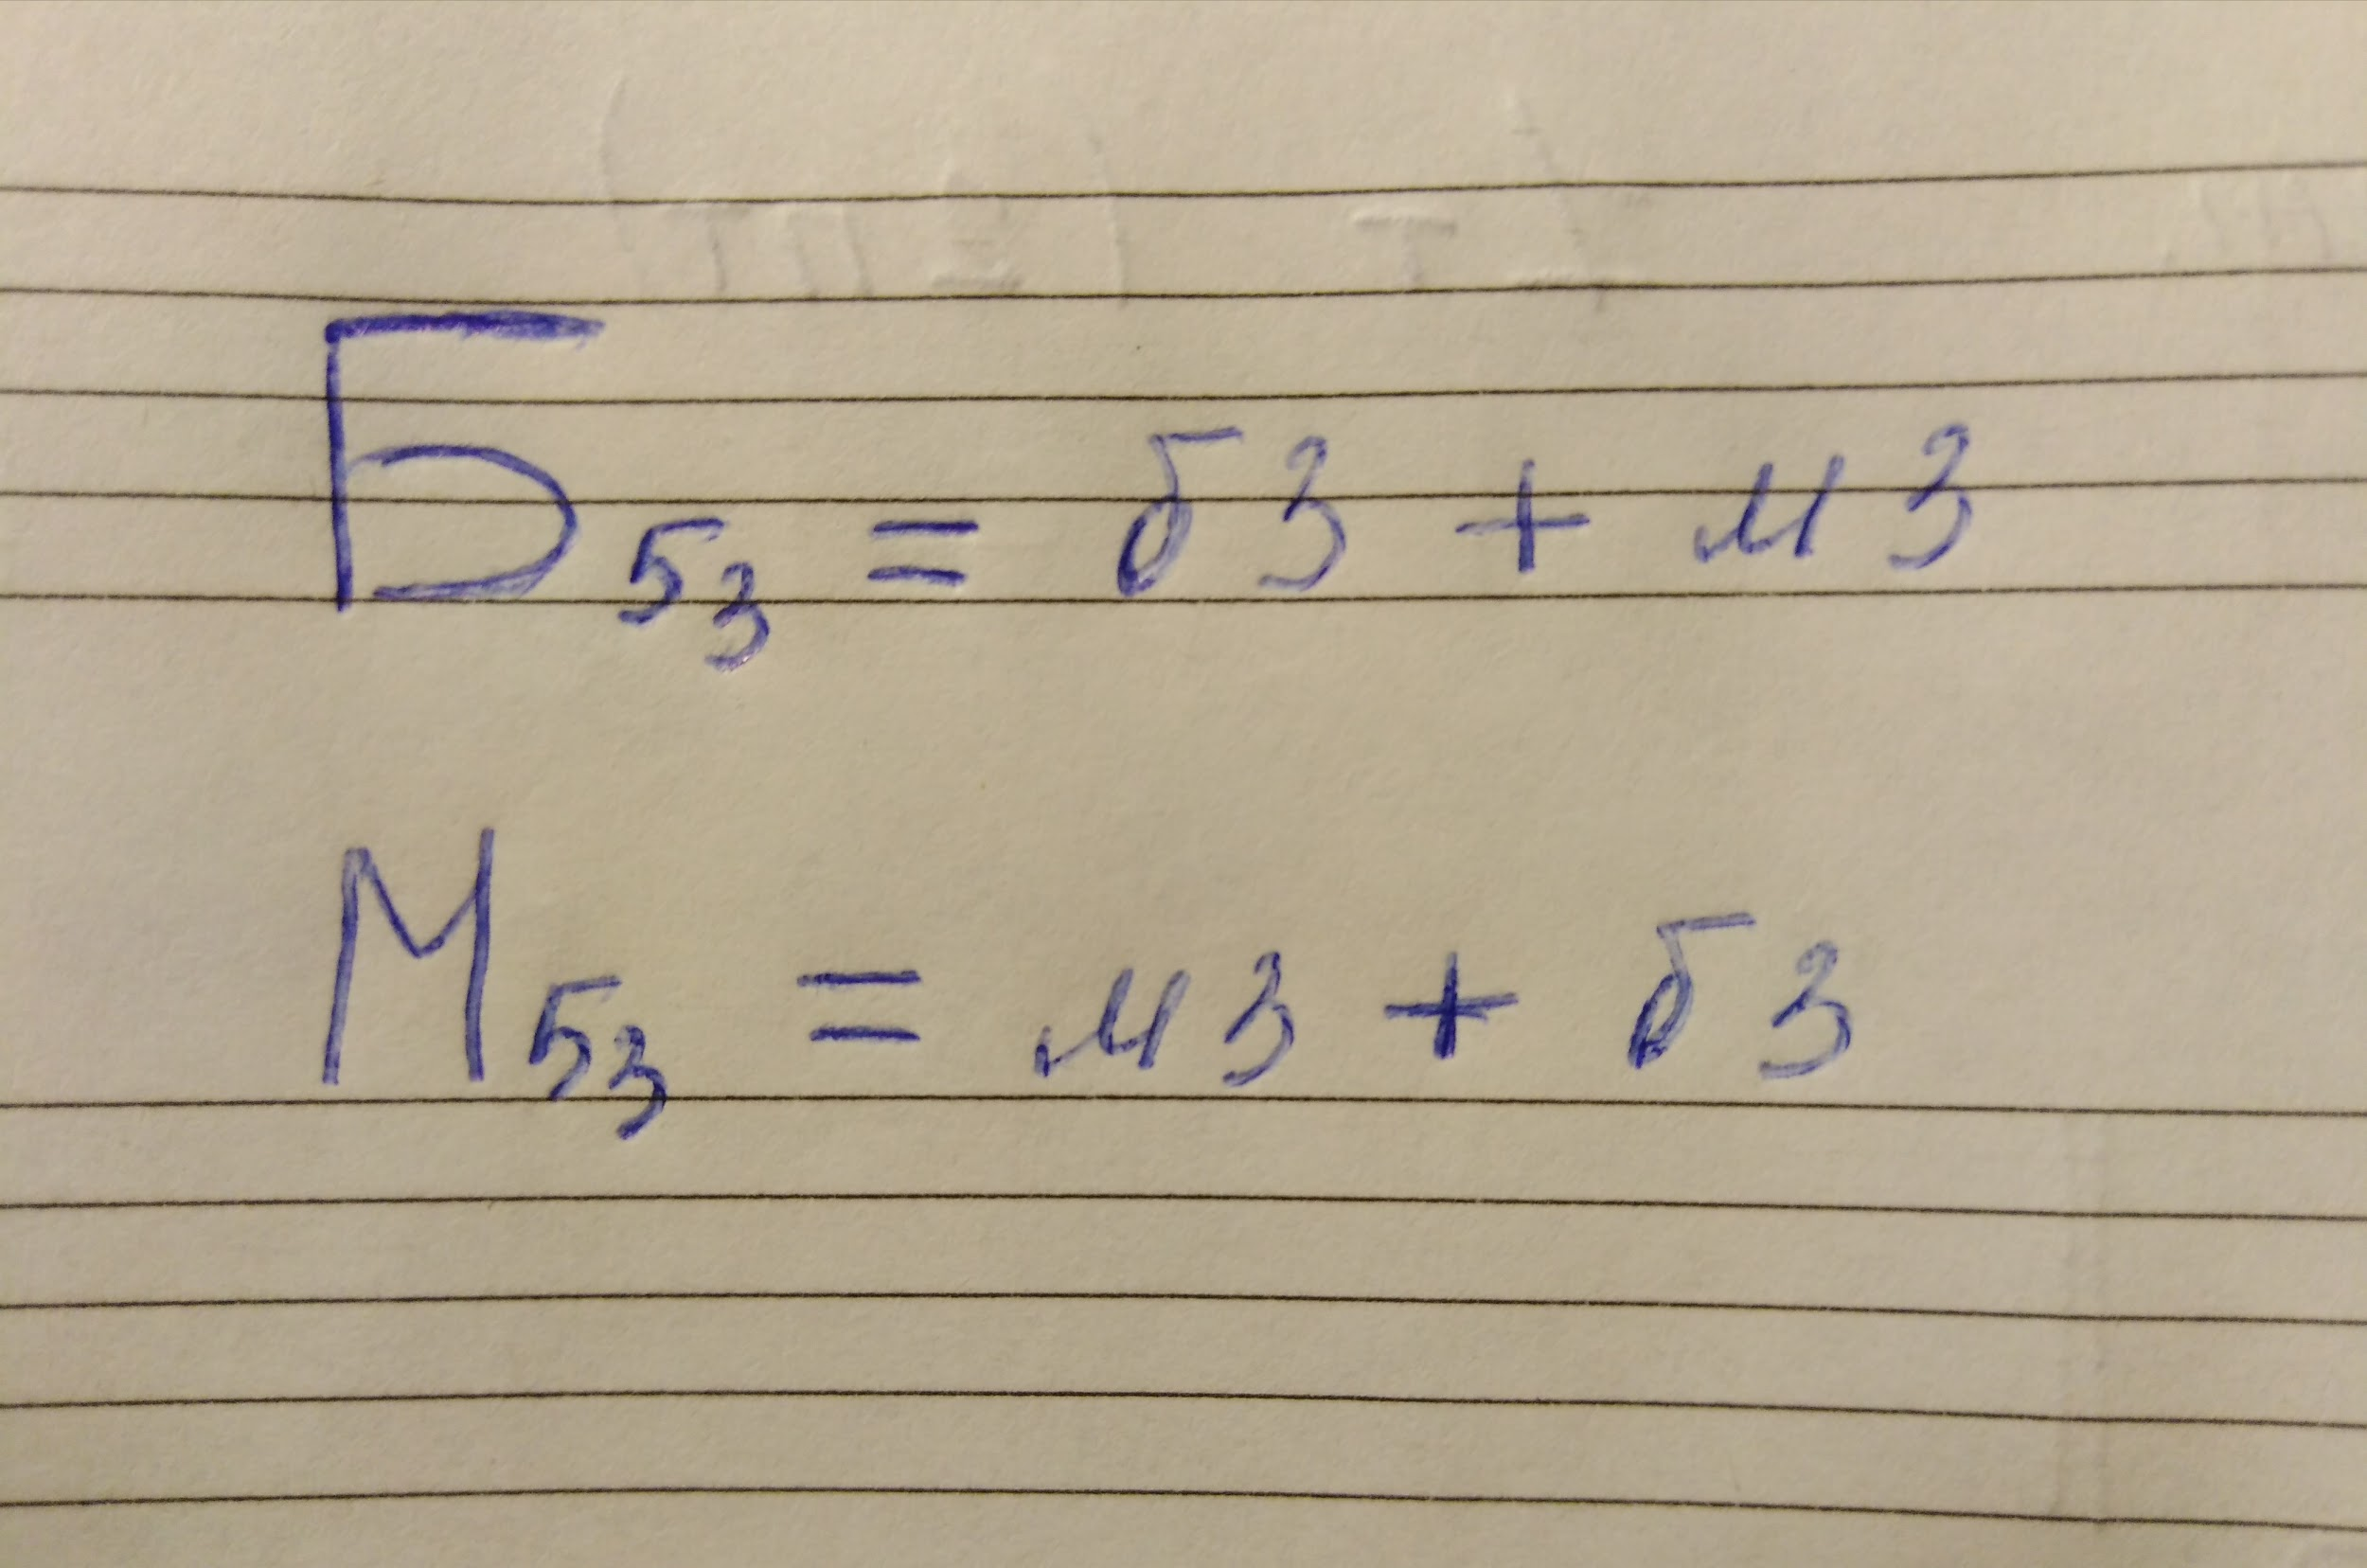 Б53 = б3 + м3
М53 = м3 + б3